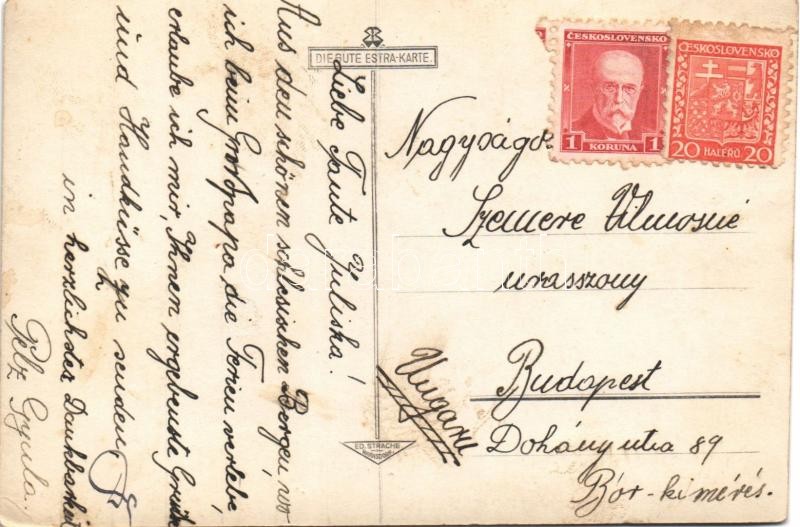 DIE GUTE ESTRA-KARTE.
Liebe Tante Juliska!
Aus den schönen schlesischen Bergen, wo
ich beim Grosspapa, die Ferien verlebe,
erlaube ich mir, Ihnen ergebenste Grüsse
und Handküsse zu senden
in herzlichster Dankbarkeit
Pelz Gyula.
ED. STRACHE
ČESKOSLOVENSKO
1 KORUNA 1
ČESKOSLOVENSKO
20 HALÉŘŮ 20
Nagyságos
Szemere Vilmosné
urasszony
Budapest
Ungarn
Dohány utca 89
Bór-kimérés.